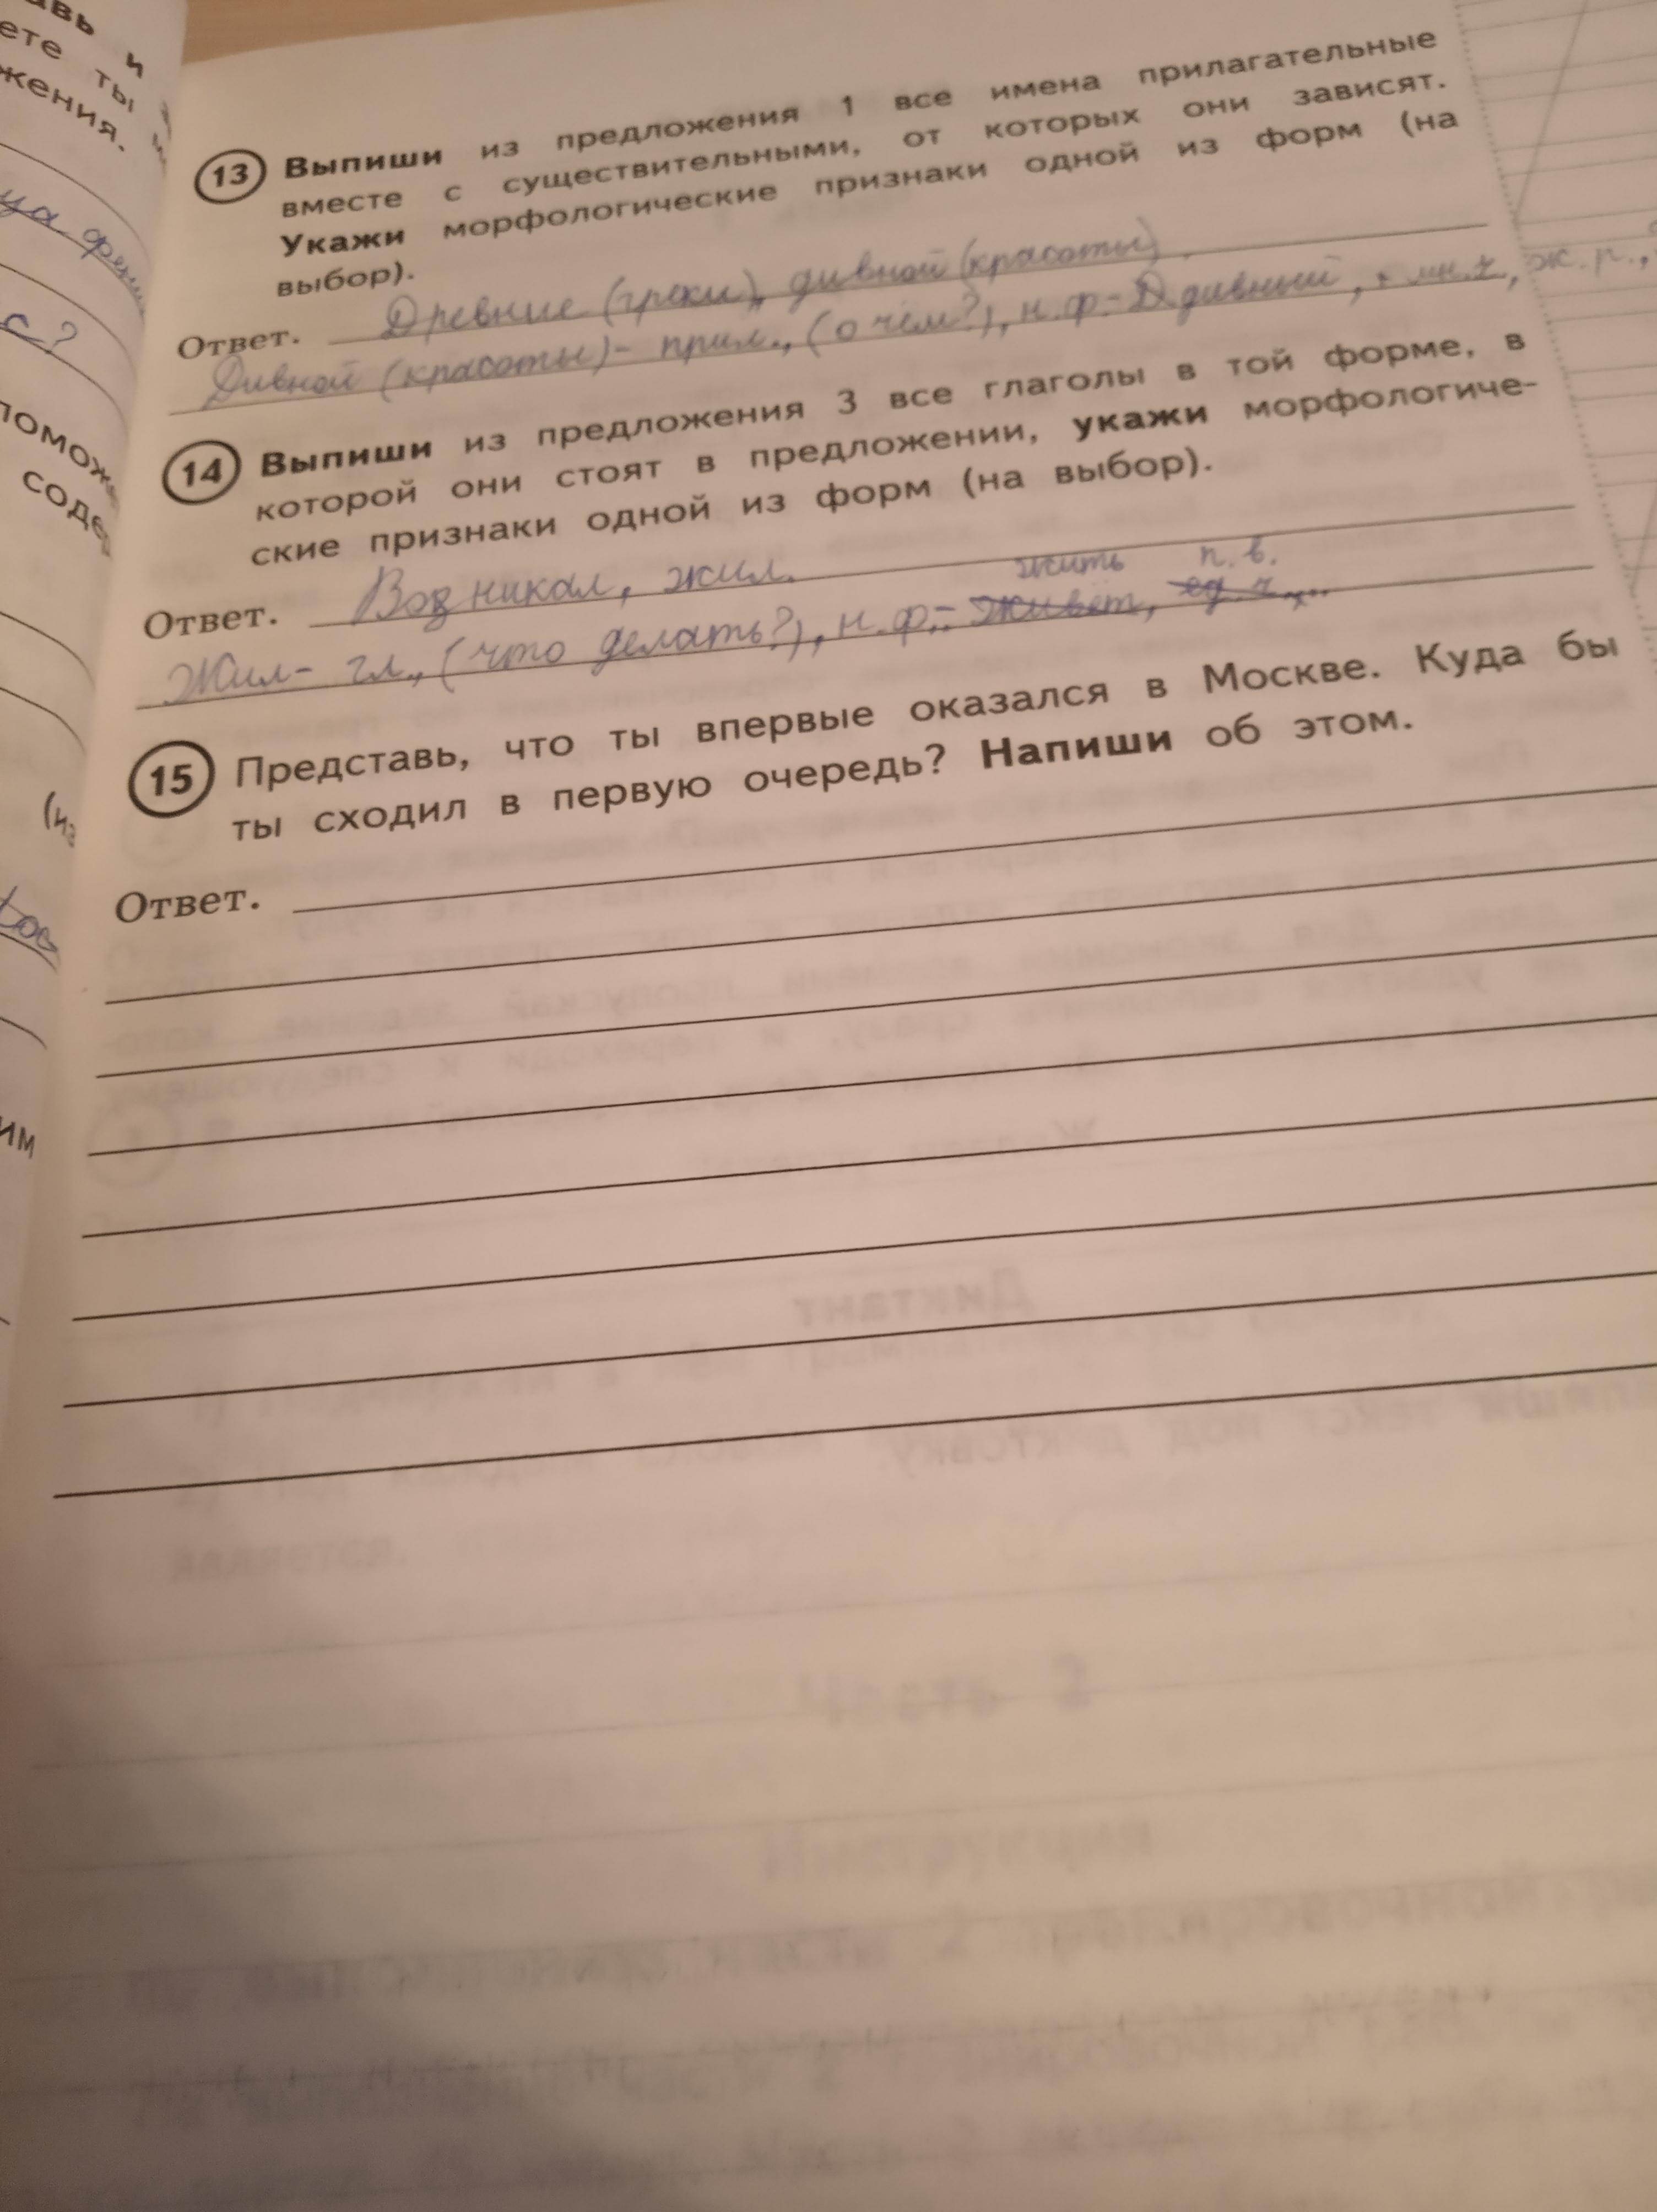 авь и
ете ты
жения.
ца
с?
помож
соде
им
13 Выпиши из предложения 1 все имена прилагательные
вместе с существительными, от которых они зависят.
Укажи морфологические признаки одной из форм (на
выбор).
Ответ. Древние (греки), дивной (красоты).
Дивной (красоты)- прил., (о чём?), н.ф.- Дивный, мн.ч, ж.р.,
14 Выпиши из предложения 3 все глаголы в той форме, в
которой они стоят в предложении, укажи морфологиче-
ские признаки одной из форм (на выбор).
Ответ. Возникал, жил.
жить п.в.
Жил- гл., (что делать?), н.ф.- живёт, ед.ч.,
15 Представь, что ты впервые оказался в Москве. Куда бы
ты сходил в первую очередь? Напиши об этом.
Ответ.